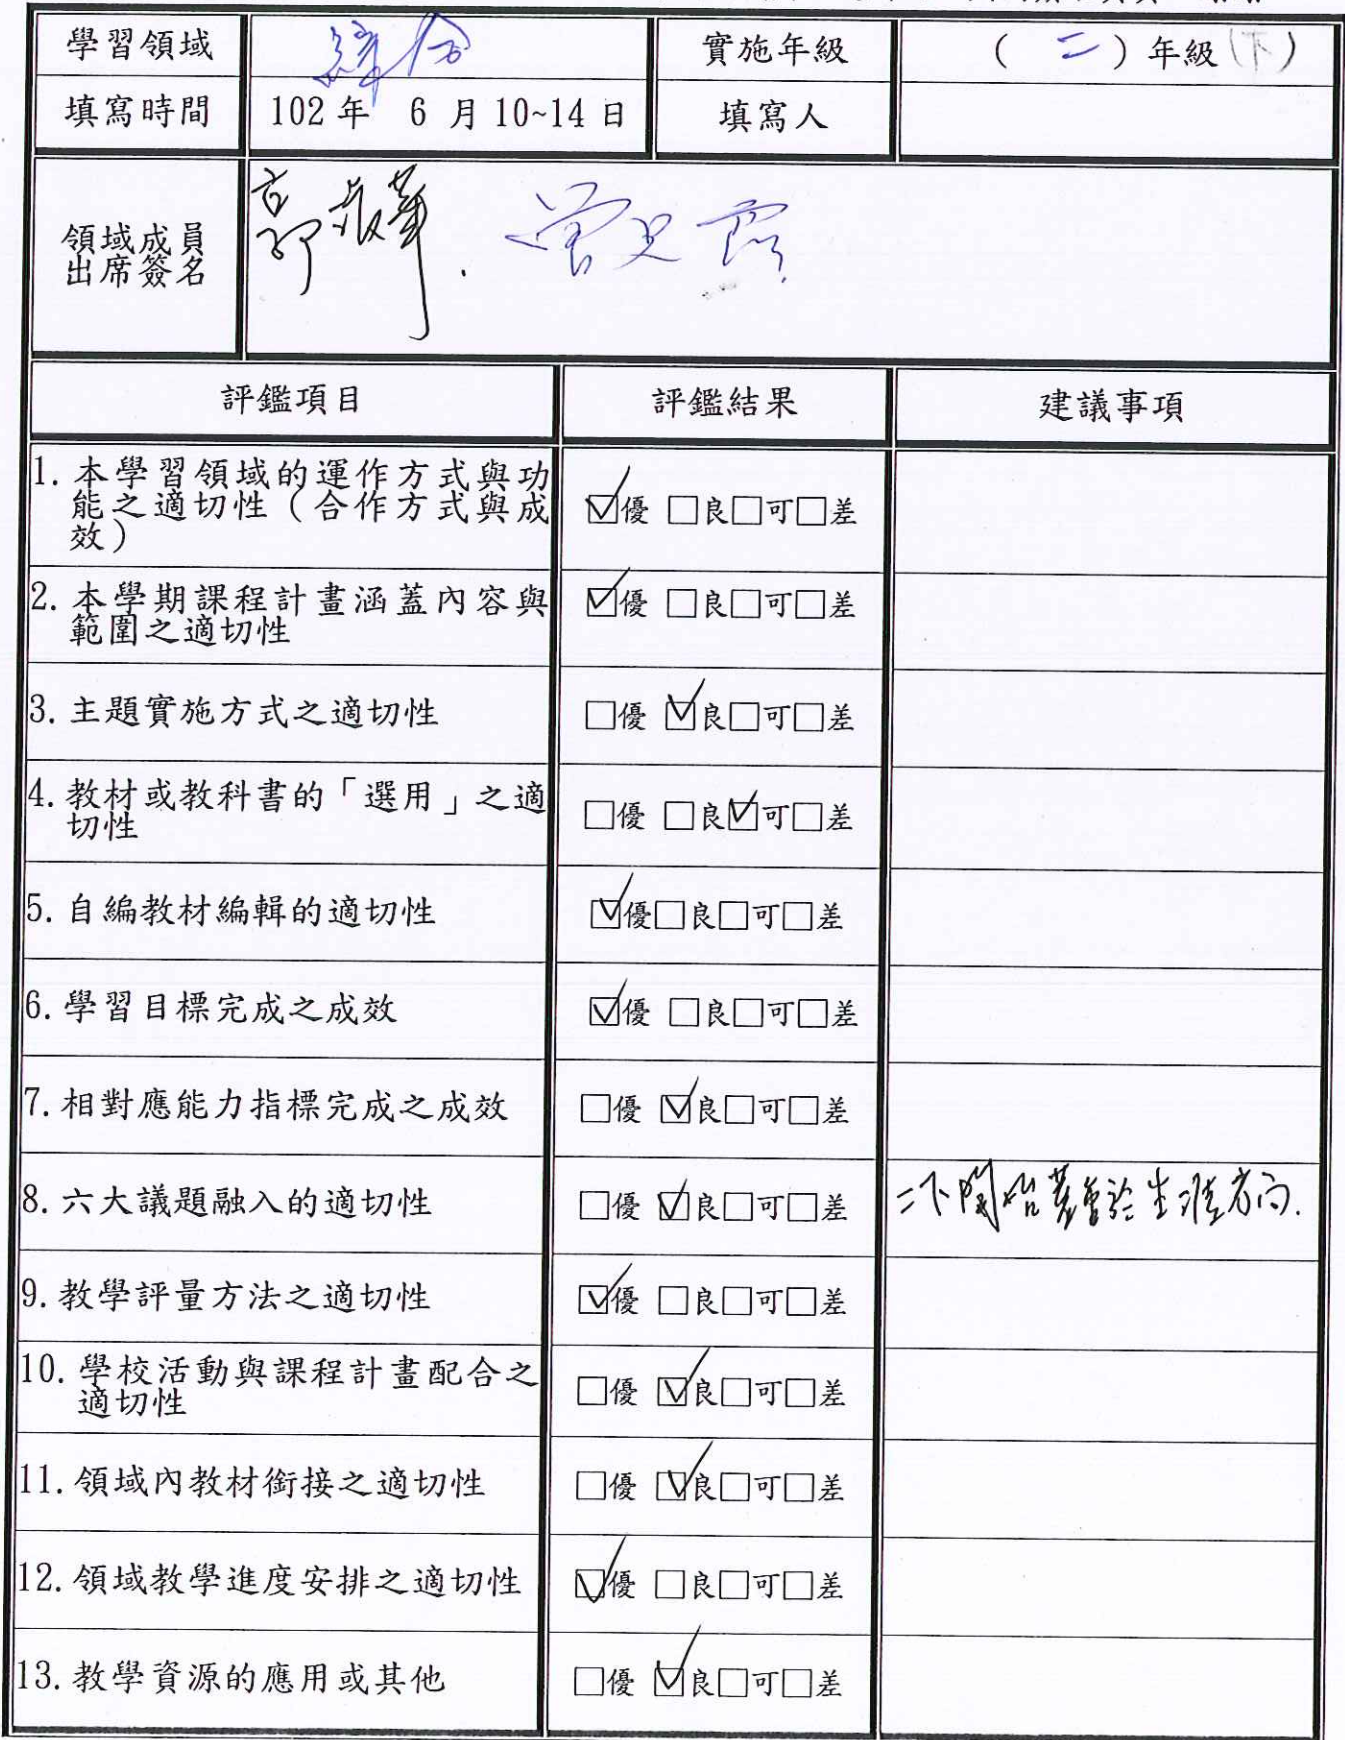 學習領域 綜合 實施年級 (二)年級(下)
填寫時間 102年 6月10~14日 填寫人
領域成員
出席簽名
評鑑項目 評鑑結果 建議事項
1.本學習領域的運作方式與功
能之適切性（合作方式與成
效）
☑優 □良□可□差
2.本學期課程計畫涵蓋內容與
範圍之適切性
☑優 □良□可□差
3.主題實施方式之適切性 □優 ☑良□可□差
4.教材或教科書的「選用」之適
切性
□優 □良☑可□差
5.自編教材編輯的適切性 ☑優□良□可□差
6.學習目標完成之成效 ☑優 □良□可□差
7.相對應能力指標完成之成效 □優 ☑良□可□差
8.六大議題融入的適切性 □優 ☑良□可□差 二下開始著重於生涯方向.
9.教學評量方法之適切性 ☑優 □良□可□差
10.學校活動與課程計畫配合之
適切性
□優 ☑良□可□差
11.領域內教材銜接之適切性 □優 ☑良□可□差
12.領域教學進度安排之適切性 ☑優 □良□可□差
13.教學資源的應用或其他 □優 ☑良□可□差